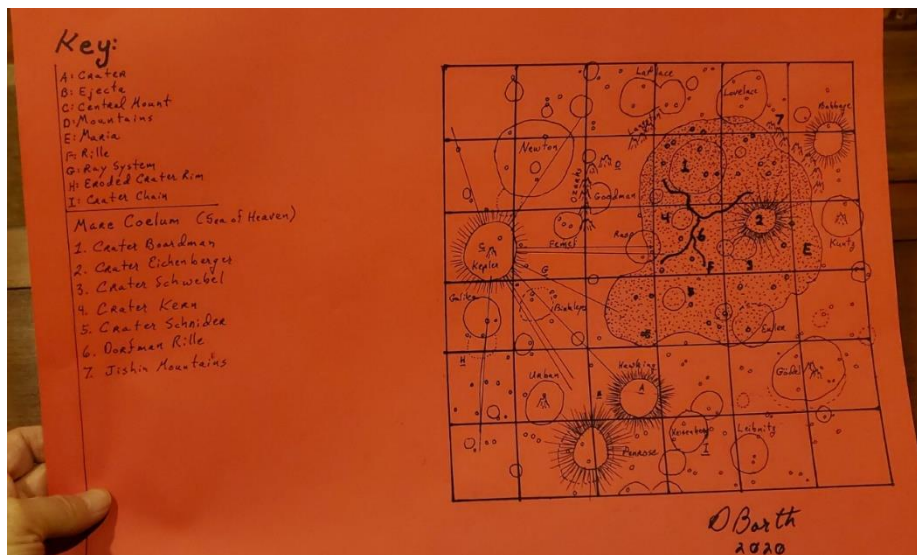 Key:
A: Crater
B: Ejecta
C: Central Mount
D: Mountains
E: Maria
F: Rille
G: Ray System
H: Eroded Crater Rim
I: Crater Chain
Mare Coelum (Sea of Heaven)
1. Crater Boardman
2. Crater Eichenberger
3. Crater Schwebel
4. Crater Kern
5. Crater Schnider
6. Dorfman Rille
7. Jishin Mountains
LaPlace
Lovelace
7
Babbage
Newton
1
D
Goodman
4
2
Femel
6
Kuntz
Kepler
G
F
3
E
5
Euler
H
Urban
Hawking
A
Gödel
B
Heisenberg
Leibnitz
Penrose
I
D Barth
2020